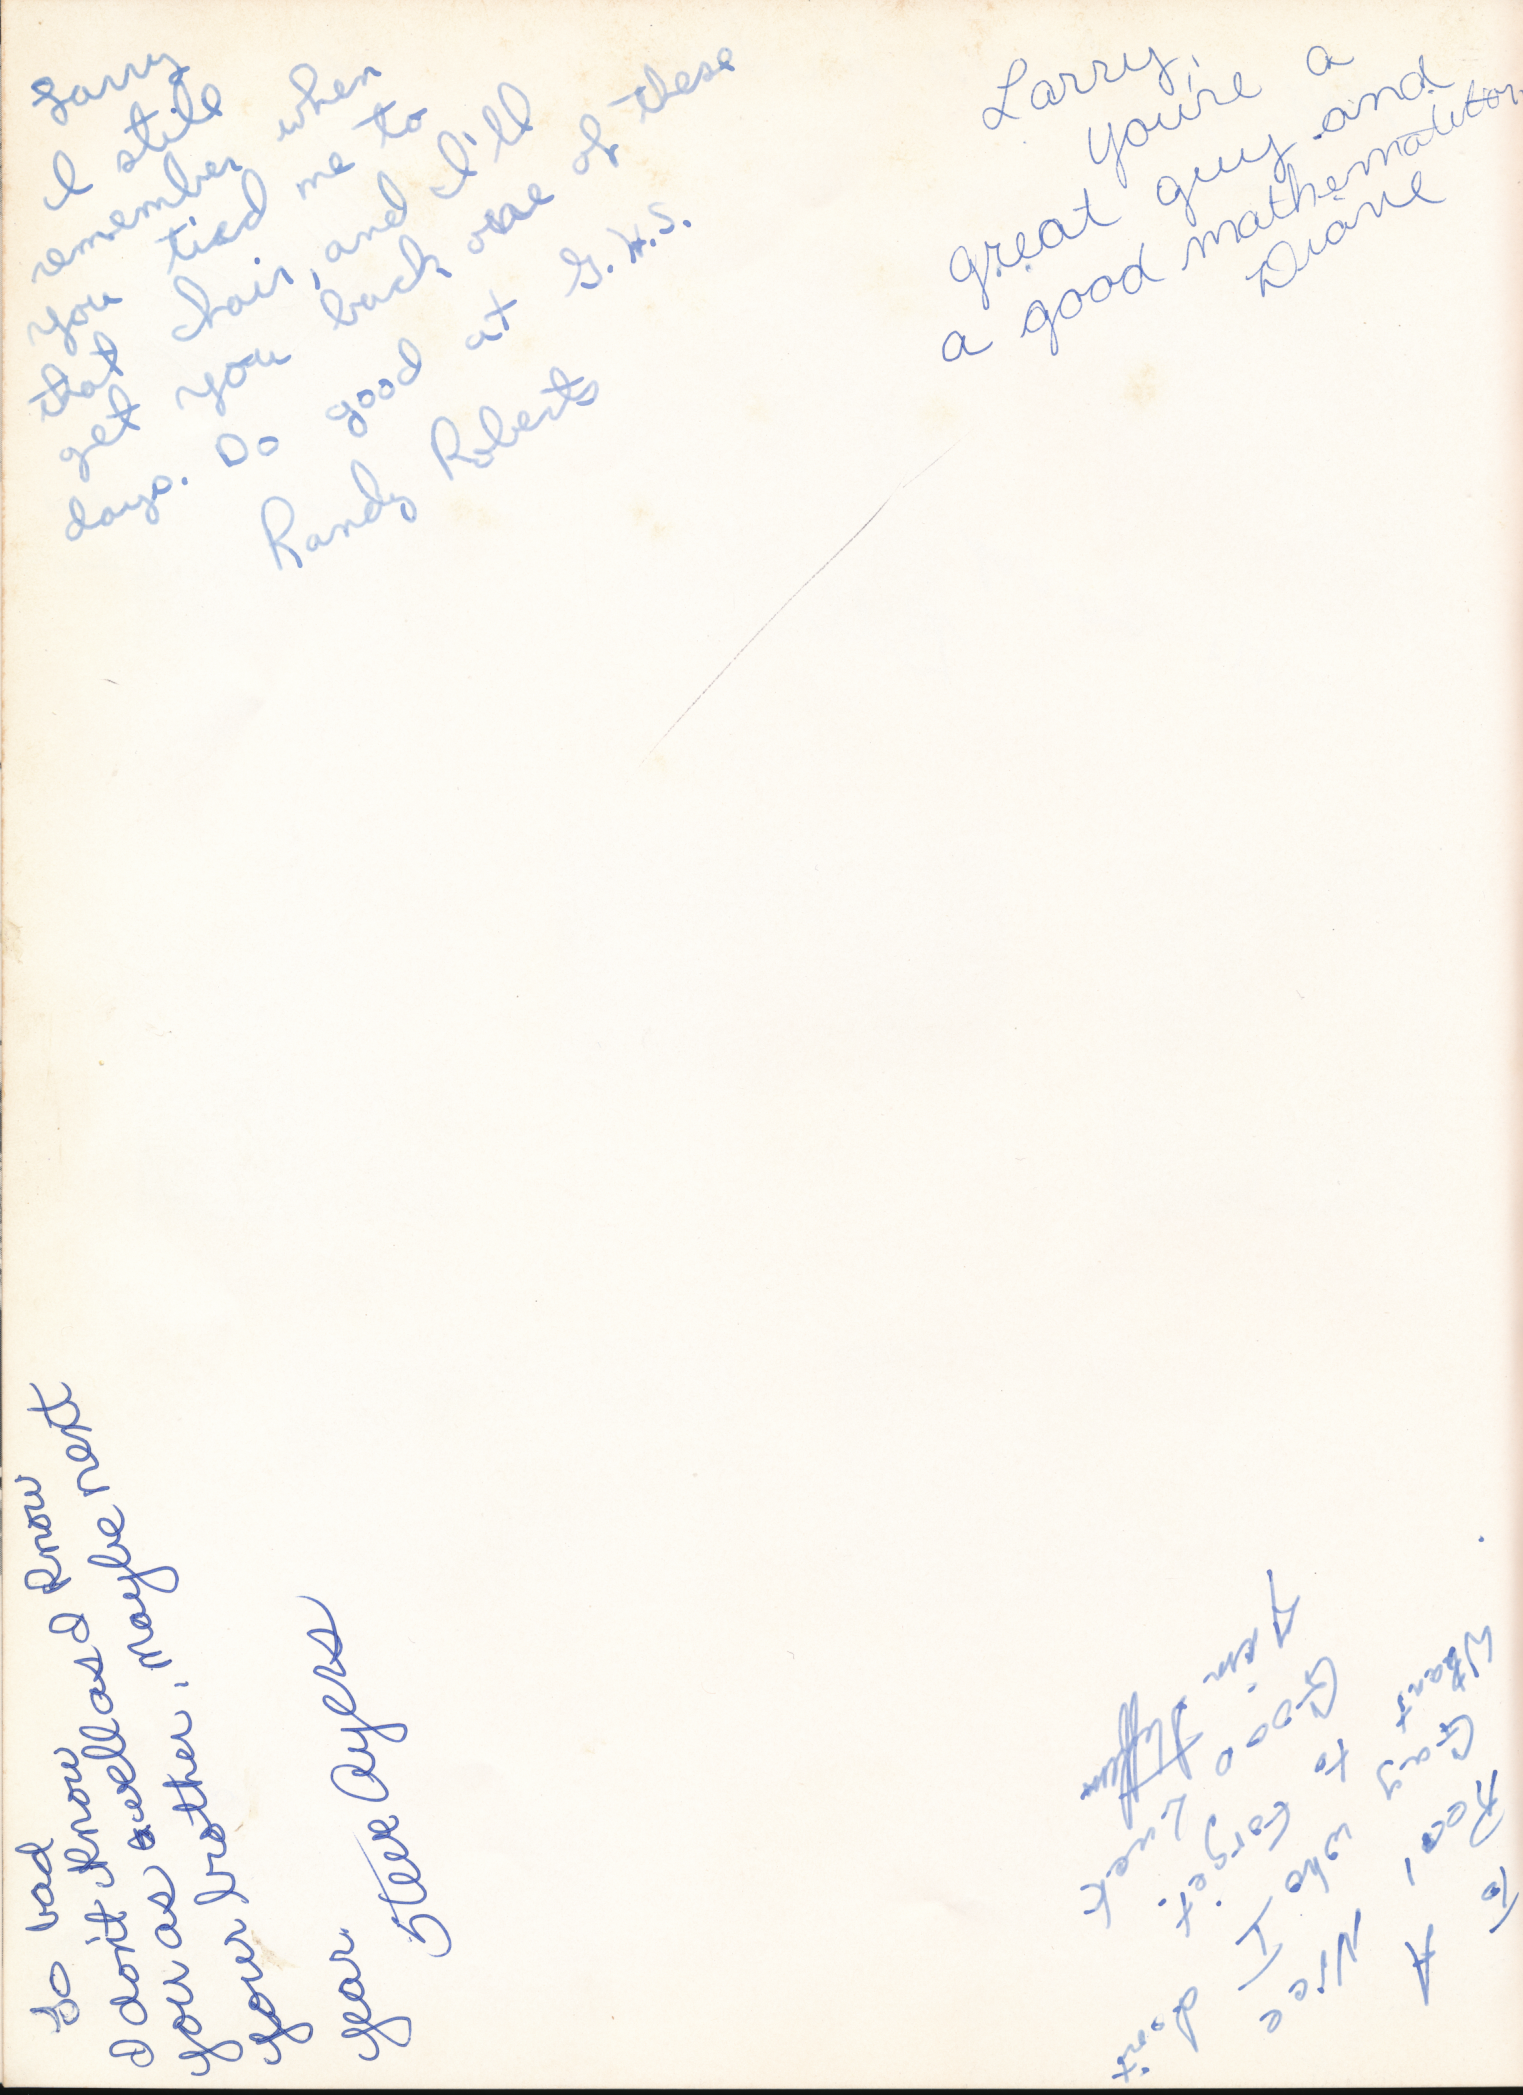 Larry
I still
remember when
you tied me to
that chair, and I'll
get you back one of these
days. Do good at G.H.S.
Randy Roberts
Larry,
you're a
great guy and
a good mathematition
Diane
To bad
I don't know
you as well as I know
your brother, maybe next
year.
Steve Ayers
To A
Real, Nice
Guy who I don't
Whant to Forget.
Good Luck